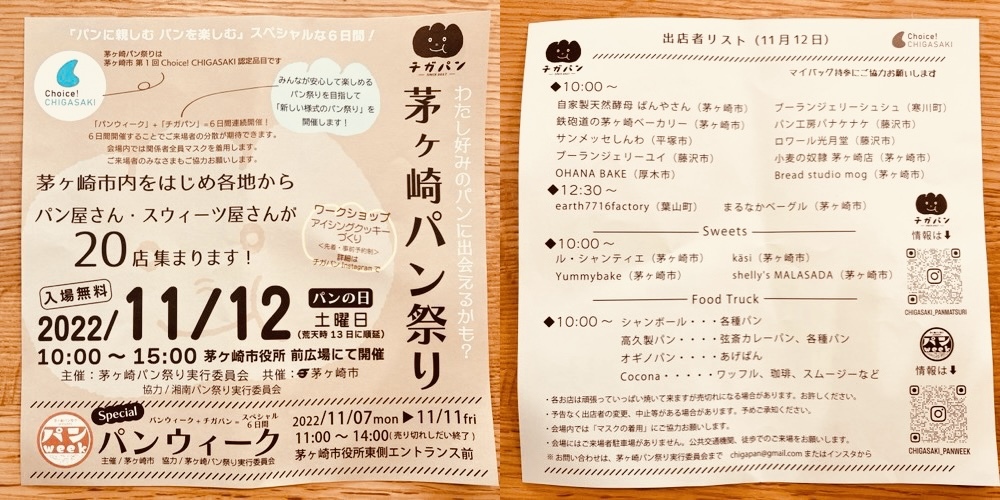 「パンに親しむ パンを楽しむ」スペシャルな6日間！
茅ヶ崎パン祭りは
茅ヶ崎市 第1回 Choice! CHIGASAKI 認定品目です
Choice!
CHIGASAKI
みんなが安心して楽しめる
パン祭りを目指して
「新しい様式のパン祭り」を
開催します！
「パンウィーク」+「チガパン」=6日間連続開催！
6日間開催することでご来場者の分散が期待できます。
会場内では関係者全員マスクを着用します。
ご来場者のみなさまもご協力お願いします。
チガパン
茅ヶ崎パン祭り
わたし好みのパンに出会えるかも？
茅ヶ崎市内をはじめ各地から
パン屋さん・スウィーツ屋さんが
20店集まります！
ワークショップ
アイシングクッキー
づくり
<先着・事前予約制>
詳細は
チガパンInstagramで
入場無料
2022/11/12 パンの日
土曜日
(荒天時13日に順延)
10:00 〜 15:00 茅ヶ崎市役所 前広場にて開催
主催：茅ヶ崎パン祭り実行委員会 共催：茅ヶ崎市
協力/湘南パン祭り実行委員会
パン
week
Special
パンウィーク+チガパン=スペシャル6日間
パンウィーク
主催/茅ヶ崎市 協力/茅ヶ崎パン祭り実行委員会
2022/11/07mon ▶ 11/11fri
11:00 〜 14:00(売り切れしだい終了)
茅ヶ崎市役所東側エントランス前
チガパン
出店者リスト（11月12日）
Choice!
CHIGASAKI
マイバッグ持参にご協力お願いします
◆10:00〜
自家製天然酵母 ぱんやさん（茅ヶ崎市）
鉄砲道の茅ヶ崎ベーカリー（茅ヶ崎市）
サンメッセしんわ（平塚市）
ブーランジェリーユイ（藤沢市）
OHANA BAKE（厚木市）
ブーランジェリーシュシュ（寒川町）
パン工房バナケナケ（藤沢市）
ロワール光月堂（藤沢市）
小麦の奴隷 茅ヶ崎店（茅ヶ崎市）
Bread studio mog（茅ヶ崎市）
◆12:30〜
earth7716factory（葉山町） まるなかベーグル（茅ヶ崎市）
Sweets
◆10:00〜
ル・シャンティエ（茅ヶ崎市） käsi（茅ヶ崎市）
Yummybake（茅ヶ崎市） shelly's MALASADA（茅ヶ崎市）
Food Truck
◆10:00〜 シャンボール・・・各種パン
高久製パン・・・・弦斎カレーパン、各種パン
オギノパン・・・・あげぱん
Cocona・・・・・ワッフル、珈琲、スムージーなど
チガパン
情報は⬇
CHIGASAKI_PANMATSURI
パン
week
情報は⬇
CHIGASAKI_PANWEEK
・各お店は頑張っていっぱい焼いて来ますが売切れになる場合があります。お許しください。
・予告なく出店者の変更、中止等がある場合があります。予めご承知ください。
・会場内では「マスクの着用」にご協力お願いします。
・会場にはご来場者駐車場がありません。公共交通機関、徒歩でのご来場をお願いします。
※ お問い合わせは、茅ヶ崎パン祭り実行委員会まで chigapan@gmail.com またはインスタから